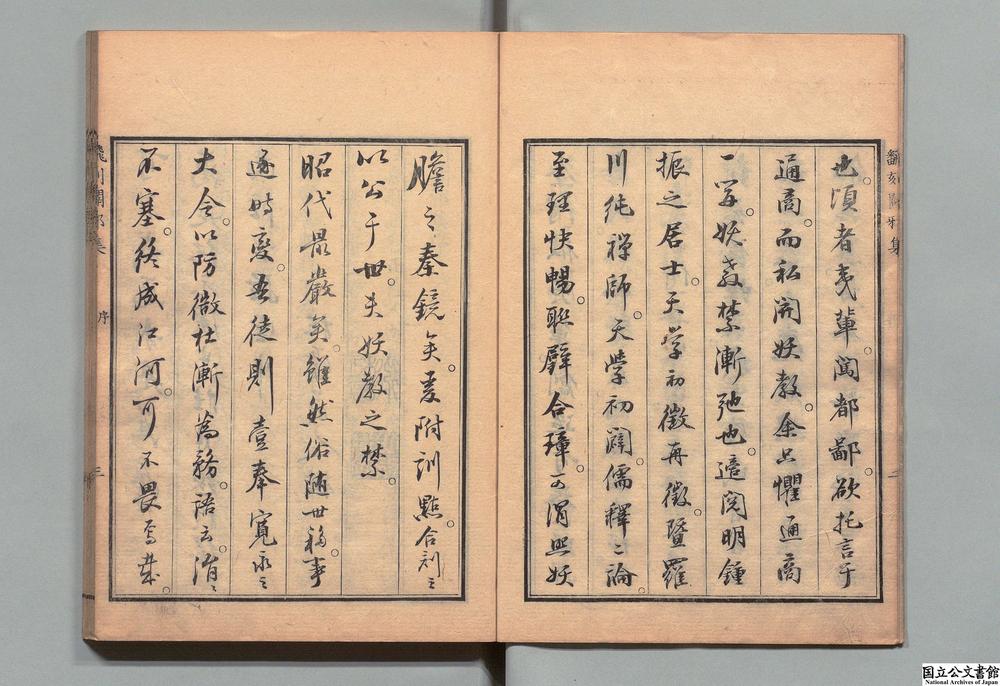 翻刻闢邪集
也。頃者夷輩闖都鄙。欲托言于
通商。而私開妖教。余只懼通商
一災。妖教禁漸弛也。適閱明鍾
振之居士。天学初徵再徵。暨羅
川純禅師。天学初闢。儒釋二論
至理快暢。聯璧合璋。可謂照妖
膽之秦鏡矣。爰附訓點。合刻之
以公于世。夫妖教之禁。
昭代最嚴矣。雖然俗随世移。事
逐時変。吾徒則壹奉寛永之
大令。以防微杜漸為務。語云。涓〻
不塞。終成江河。可不畏焉哉。
序
三
国立公文書館
National Archives of Japan